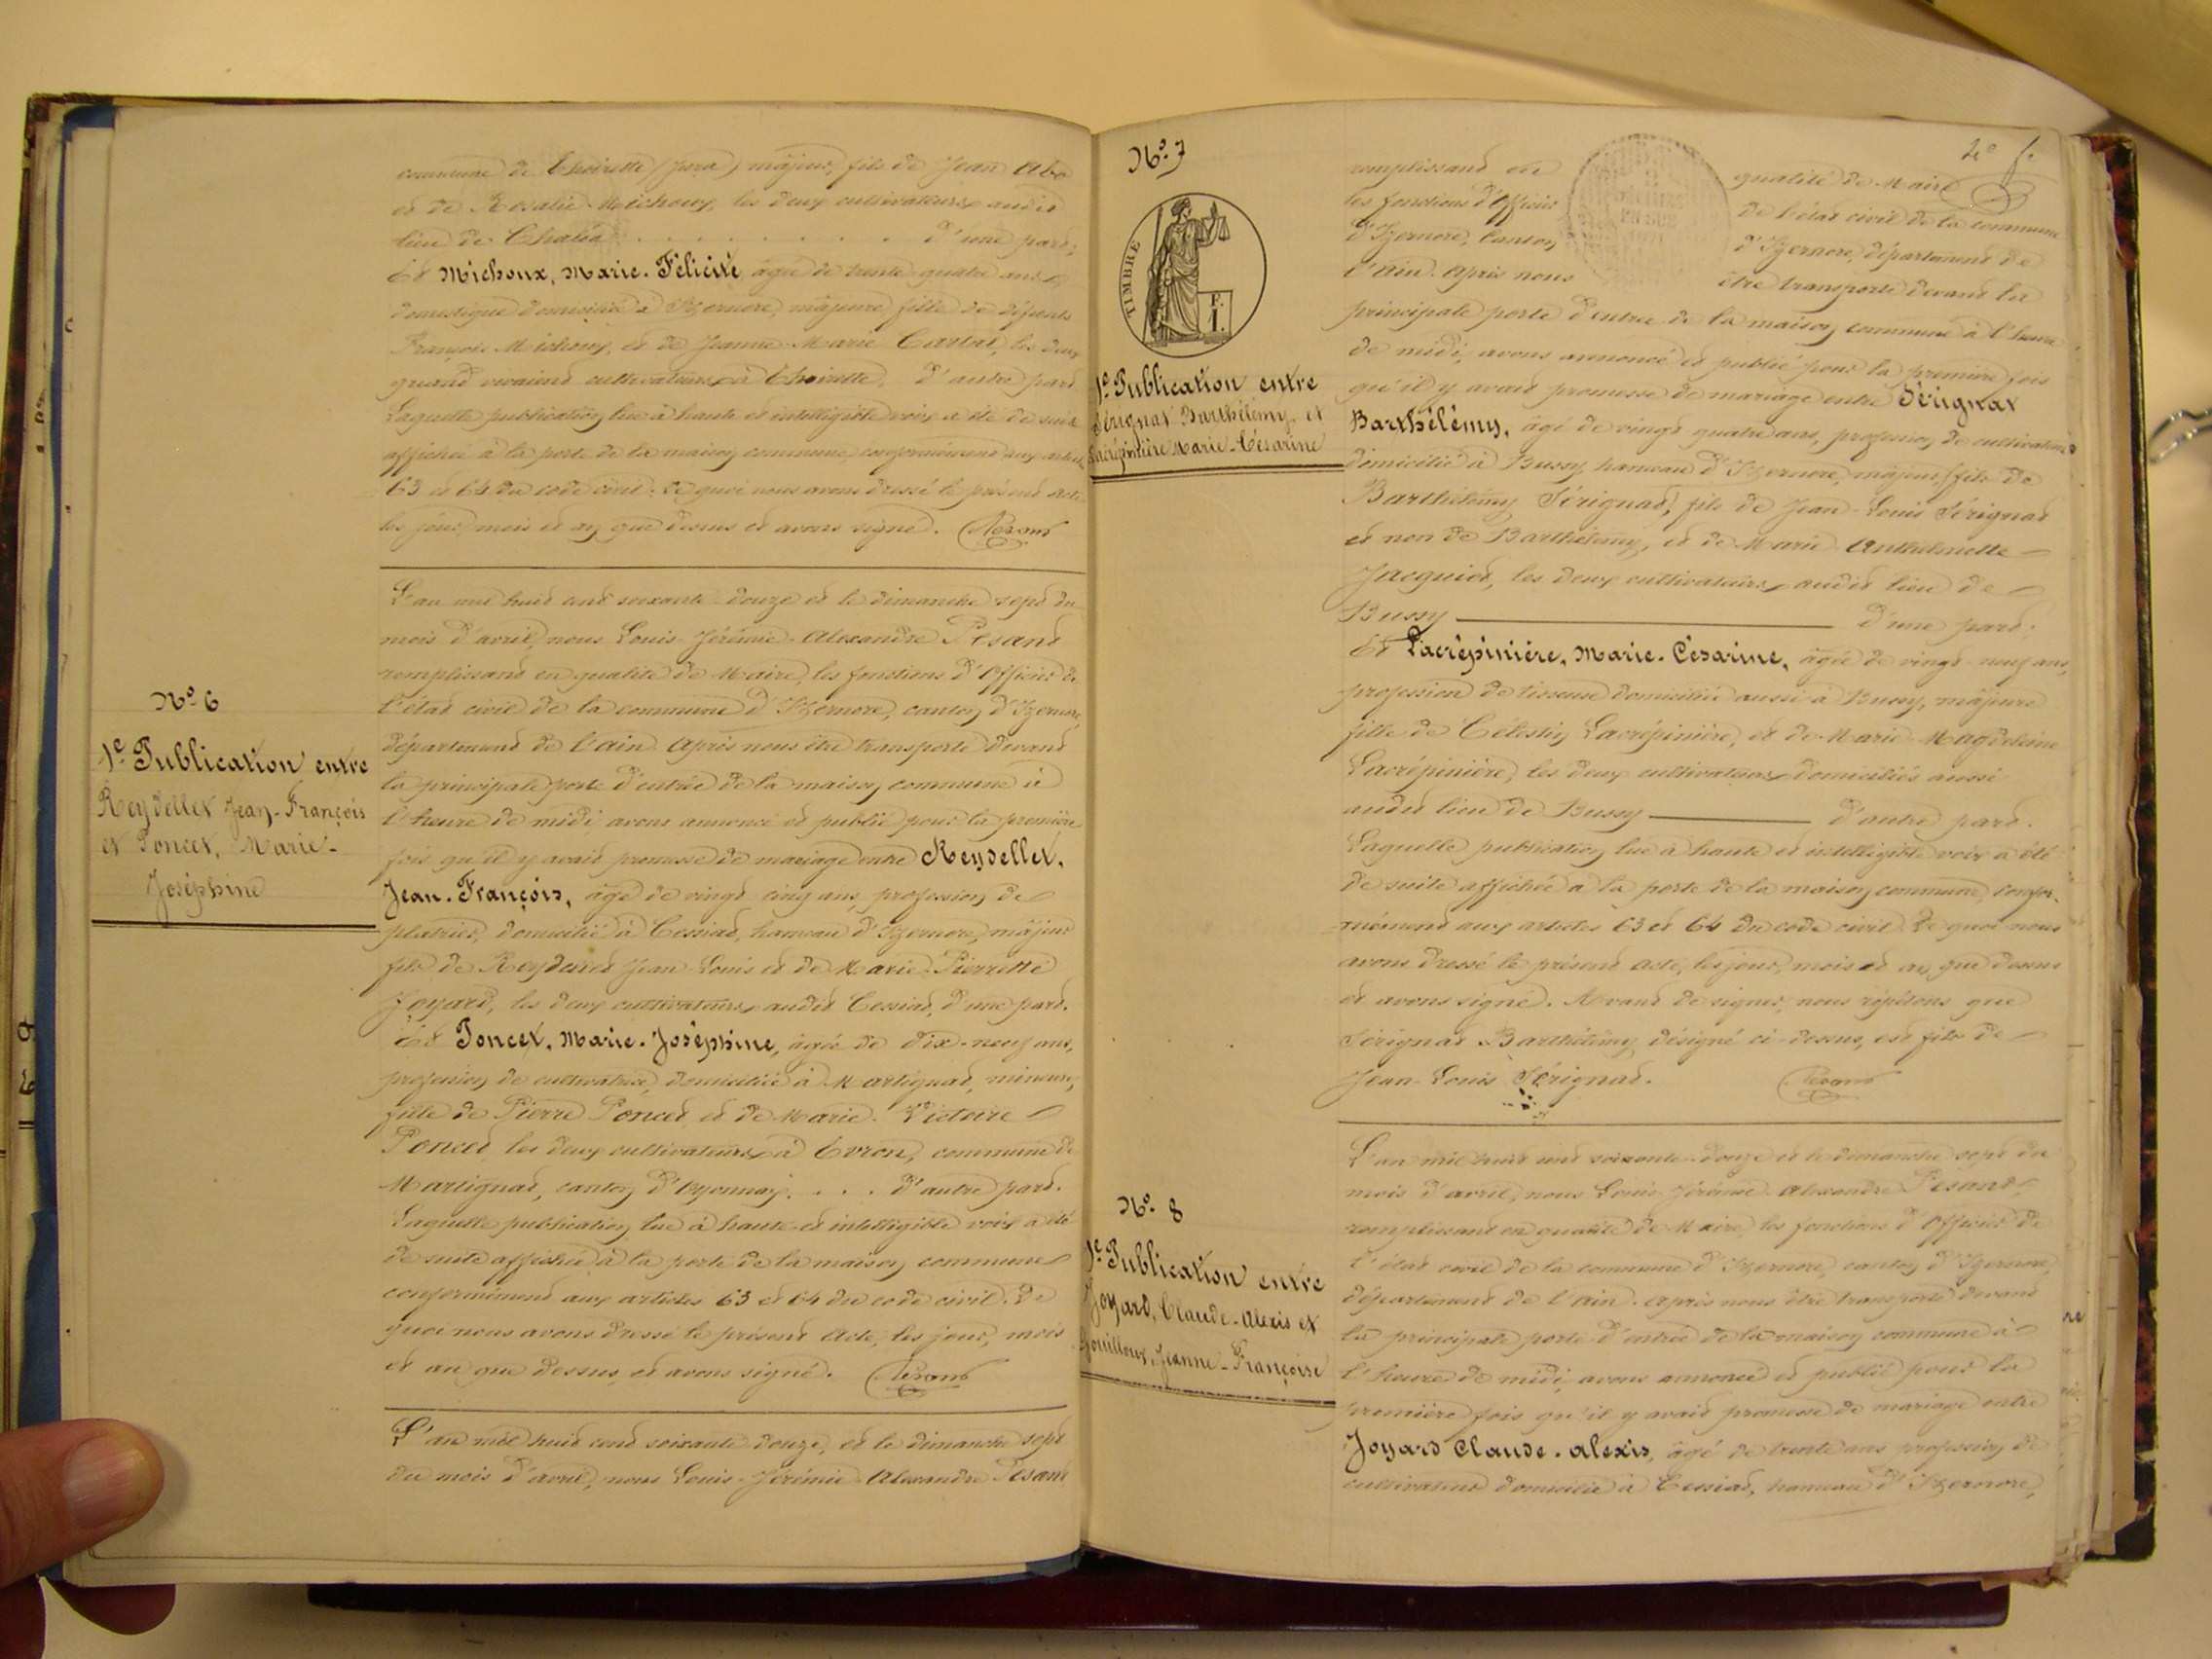 commune de Thoirette (Jura) majeur, fils de Jean Abo
et de Rosalie Michoux, les deux cultivateurs audit
lieu de Chaléa . . . . . . . . . d'une part;
Et Michoux, Marie-Félicité, âgée de trente quatre ans
domestique domiciliée à Izernore, majeure fille de défunts
François Michoux, et de Jeanne-Marie Carlat, les deux
quand vivaient cultivateurs à Thoirette, d'autre part
Laquelle publication, lue à haute et intelligible voix a été de suite
affichée à la porte de la maison commune, conformément aux articles
63 et 64 du code civil; de quoi nous avons dressé le présent acte
les jour, mois et an que dessus et avons signé. Pesant
N° 6
1e Publication entre
Reydellet Jean-François
et Poncet, Marie-
Joséphine
L'an mil huit cent soixante-douze et le dimanche sept du
mois d'avril, nous Louis-Jérémie-Alexandre Pesant
remplissant en qualité de Maire, les fonctions d'Officier de
l'état civil de la commune d'Izernore, canton d'Izernore,
département de l'Ain. Après nous être transporté devant
la principale porte d'entrée de la maison commune à
l'heure de midi avons annoncé et publié pour la première
fois qu'il y avait promesse de mariage entre Reydellet,
Jean-François, âgé de vingt cinq ans, profession de
plâtrier, domicilié à Cessiat, hameau d'Izernore, majeur
fils de Jean Louis et de Marie-Pierrette
Joyard, les deux cultivateurs audit Cessiat, d'une part.
Et Poncet, Marie-Joséphine, âgée de dix-neuf ans,
profession de cultivatrice, domiciliée à Martignat, mineure,
fille de Pierre Poncet et de Marie-Victoire
Poncet les deux cultivateurs à Evron, commune de
Martignat, canton d'Oyonnax. . . . d'autre part.
Laquelle publication, lue à haute et intelligible voix a été
de suite affichée à la porte de la maison commune
conformément aux articles 63 et 64 du code civil. De
quoi nous avons dressé le présent Acte, les jour, mois
et an que dessus, et avons signé. Pesant
L'an mil huit cent soixante-douze, et le dimanche sept
du mois d'avril, nous Louis-Jérémie-Alexandre Pesant
N° 7
TIMBRE
F.
I.
1e Publication entre
Sérignat Barthélémy, et
Lacrépinière Marie-Césarine
4e f.
remplissant en qualité de Maire
les fonctions d'Officier de l'état civil de la commune
d'Izernore, canton d'Izernore, département de
l'Ain. Après nous être transporté devant la
principale porte d'entrée de la maison commune à l'heure
de midi, avons annoncé et publié pour la première fois
qu'il y avait promesse de mariage entre Sérignat
Barthélémy, âgé de vingt quatre ans, profession de cultivateur
domicilié à Bussy, hameau d'Izernore, majeur, fils de
Barthélémy Sérignat, fils de Jean-Louis Sérignat
et non de Barthélémy, et de Marie Anthelmette
Jacquiot, les deux cultivateurs audit lieu de
Bussy d'une part.
Et Lacrépinière, Marie-Césarine, âgée de vingt-neuf ans,
profession de tisseuse domiciliée aussi à Bussy, majeure
fille de Célestin Lacrépinière, et de Marie-Magdeleine
Lacrépinière, les deux cultivateurs domiciliés aussi
audit lieu de Bussy d'autre part.
Laquelle publication, lue à haute et intelligible voix a été
de suite affichée à la porte de la maison commune, confor-
mément aux articles 63 et 64 du code civil. De quoi nous
avons dressé le présent acte, les jour, mois et an, que dessus
et avons signé. Avant de signer, nous répétons que
Sérignat Barthélémy, désigné ci-dessus, est fils de
Jean-Louis Sérignat. Pesant
N° 8
1e Publication entre
Joyard, Claude-Alexis et
Gouilloux, Jeanne-Françoise
L'an mil huit cent soixante-douze et le dimanche sept du
mois d'avril, nous Louis-Jérémie-Alexandre Pesant,
remplissant en qualité de Maire, les fonctions d'Officier de
l'état civil de la commune d'Izernore, canton d'Izernore,
département de l'Ain. Après nous être transporté devant
la principale porte d'entrée de la maison commune à
l'heure de midi, avons annoncé et publié pour la
première fois qu'il y avait promesse de mariage entre
Joyard Claude-Alexis, âgé de trente ans profession de
cultivateur domicilié à Cessiat, hameau d'Izernore,